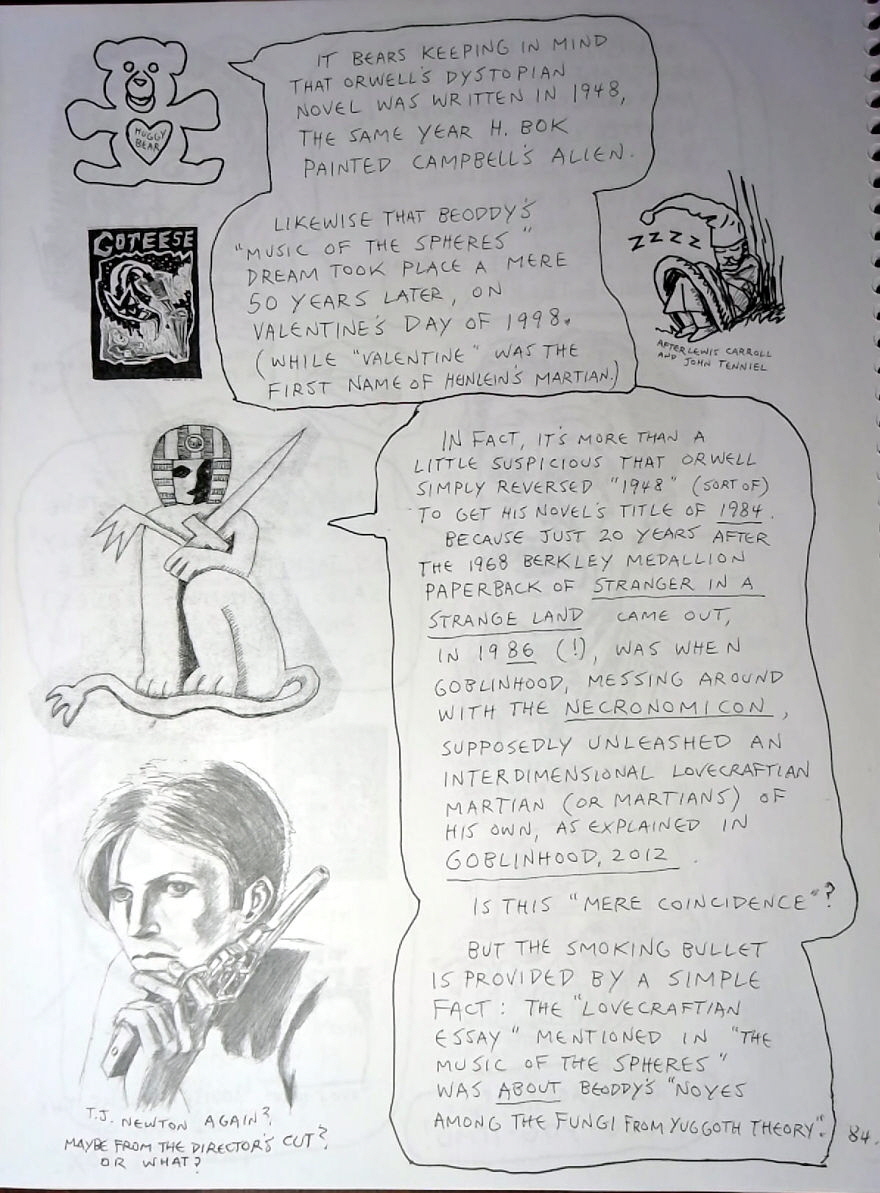 HUGGY
BEAR
IT BEARS KEEPING IN MIND
THAT ORWELL'S DYSTOPIAN
NOVEL WAS WRITTEN IN 1948,
THE SAME YEAR H. BOK
PAINTED CAMPBELL'S ALIEN.
LIKEWISE THAT BEODDY'S
"MUSIC OF THE SPHERES"
DREAM TOOK PLACE A MERE
50 YEARS LATER, ON
VALENTINE'S DAY OF 1998.
(WHILE "VALENTINE" WAS THE
FIRST NAME OF HENLEIN'S MARTIAN.)
GOTEESE
ZZZZ
AFTER LEWIS CARROLL
AND JOHN TENNIEL
IN FACT, IT'S MORE THAN A
LITTLE SUSPICIOUS THAT ORWELL
SIMPLY REVERSED "1948" (SORT OF)
TO GET HIS NOVEL'S TITLE OF 1984.
BECAUSE JUST 20 YEARS AFTER
THE 1968 BERKLEY MEDALLION
PAPERBACK OF STRANGER IN A
STRANGE LAND CAME OUT,
IN 1986 (!), WAS WHEN
GOBLINHOOD, MESSING AROUND
WITH THE NECRONOMICON,
SUPPOSEDLY UNLEASHED AN
INTERDIMENSIONAL LOVECRAFTIAN
MARTIAN (OR MARTIANS) OF
HIS OWN, AS EXPLAINED IN
GOBLINHOOD, 2012.
IS THIS "MERE COINCIDENCE"?
BUT THE SMOKING BULLET
IS PROVIDED BY A SIMPLE
FACT: THE "LOVECRAFTIAN
ESSAY" MENTIONED IN "THE
MUSIC OF THE SPHERES"
WAS ABOUT BEODDY'S "NOYES
AMONG THE FUNGI FROM YUGGOTH THEORY."
T.J. NEWTON AGAIN?
MAYBE FROM THE DIRECTOR'S CUT?
OR WHAT?
84.